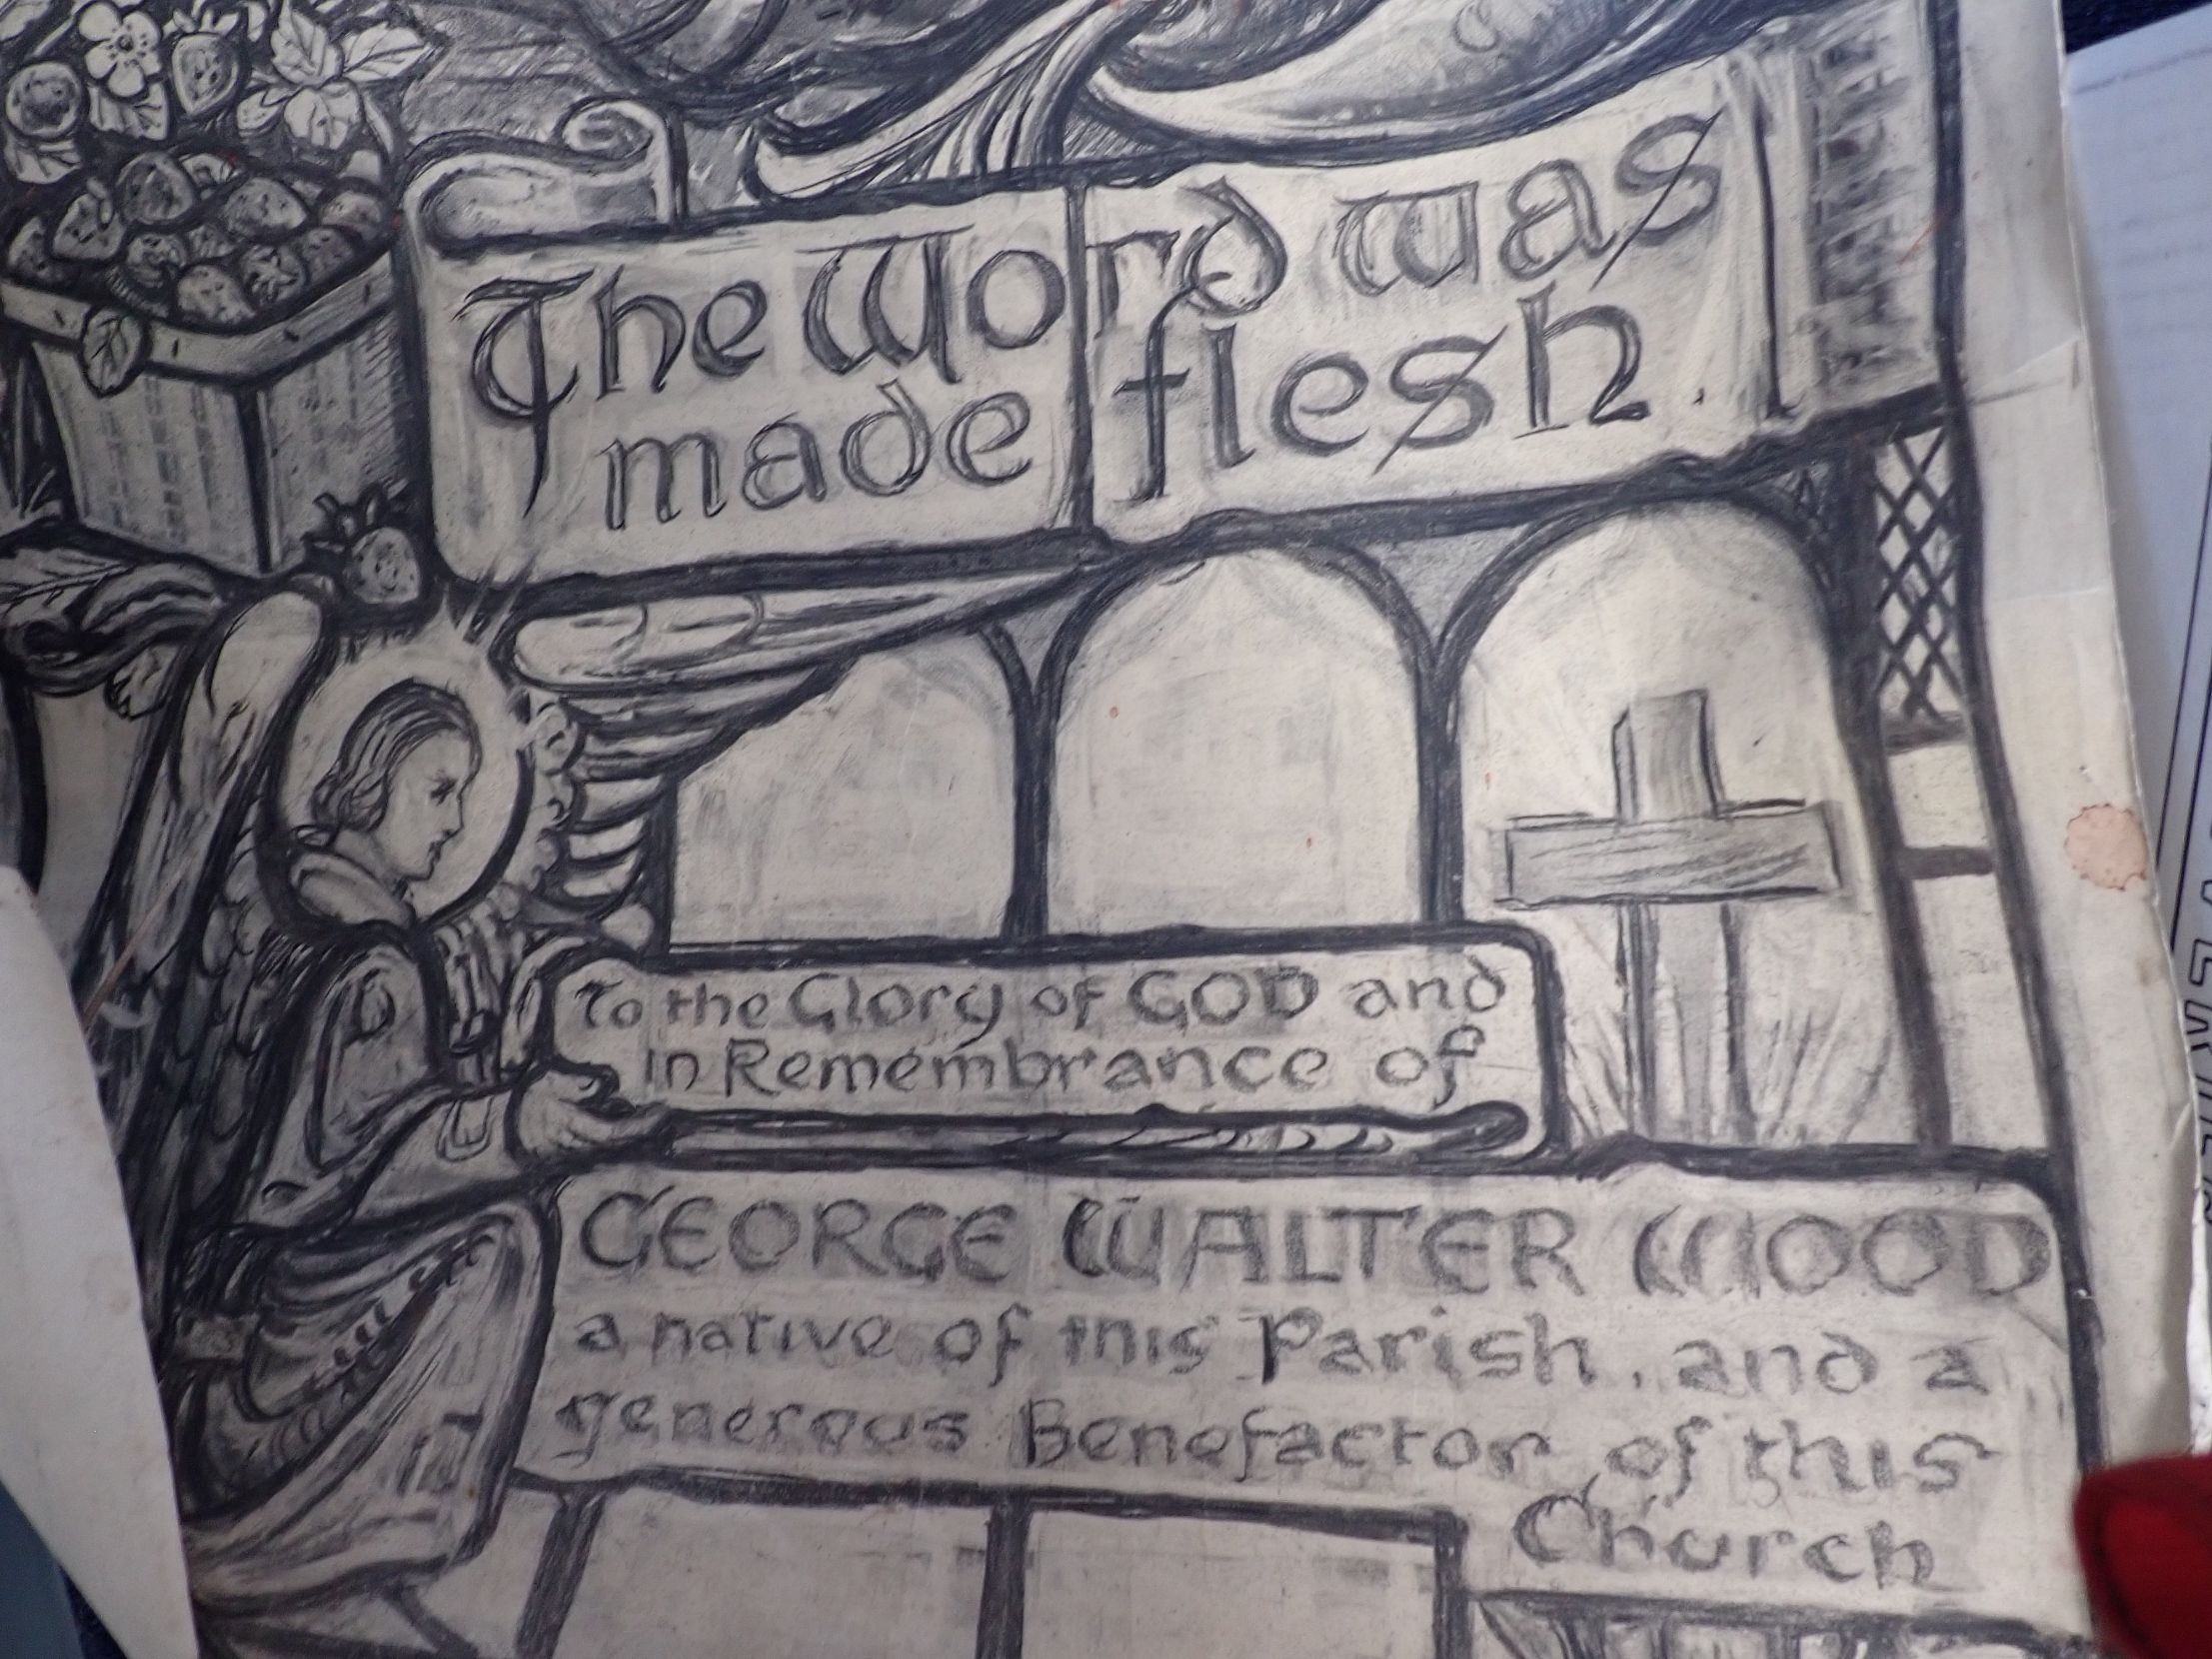 The Word was
made flesh.
To the Glory of GOD and
in Remembrance of
GEORGE WALTER WOOD
a native of this Parish, and a
generous Benefactor of this
Church